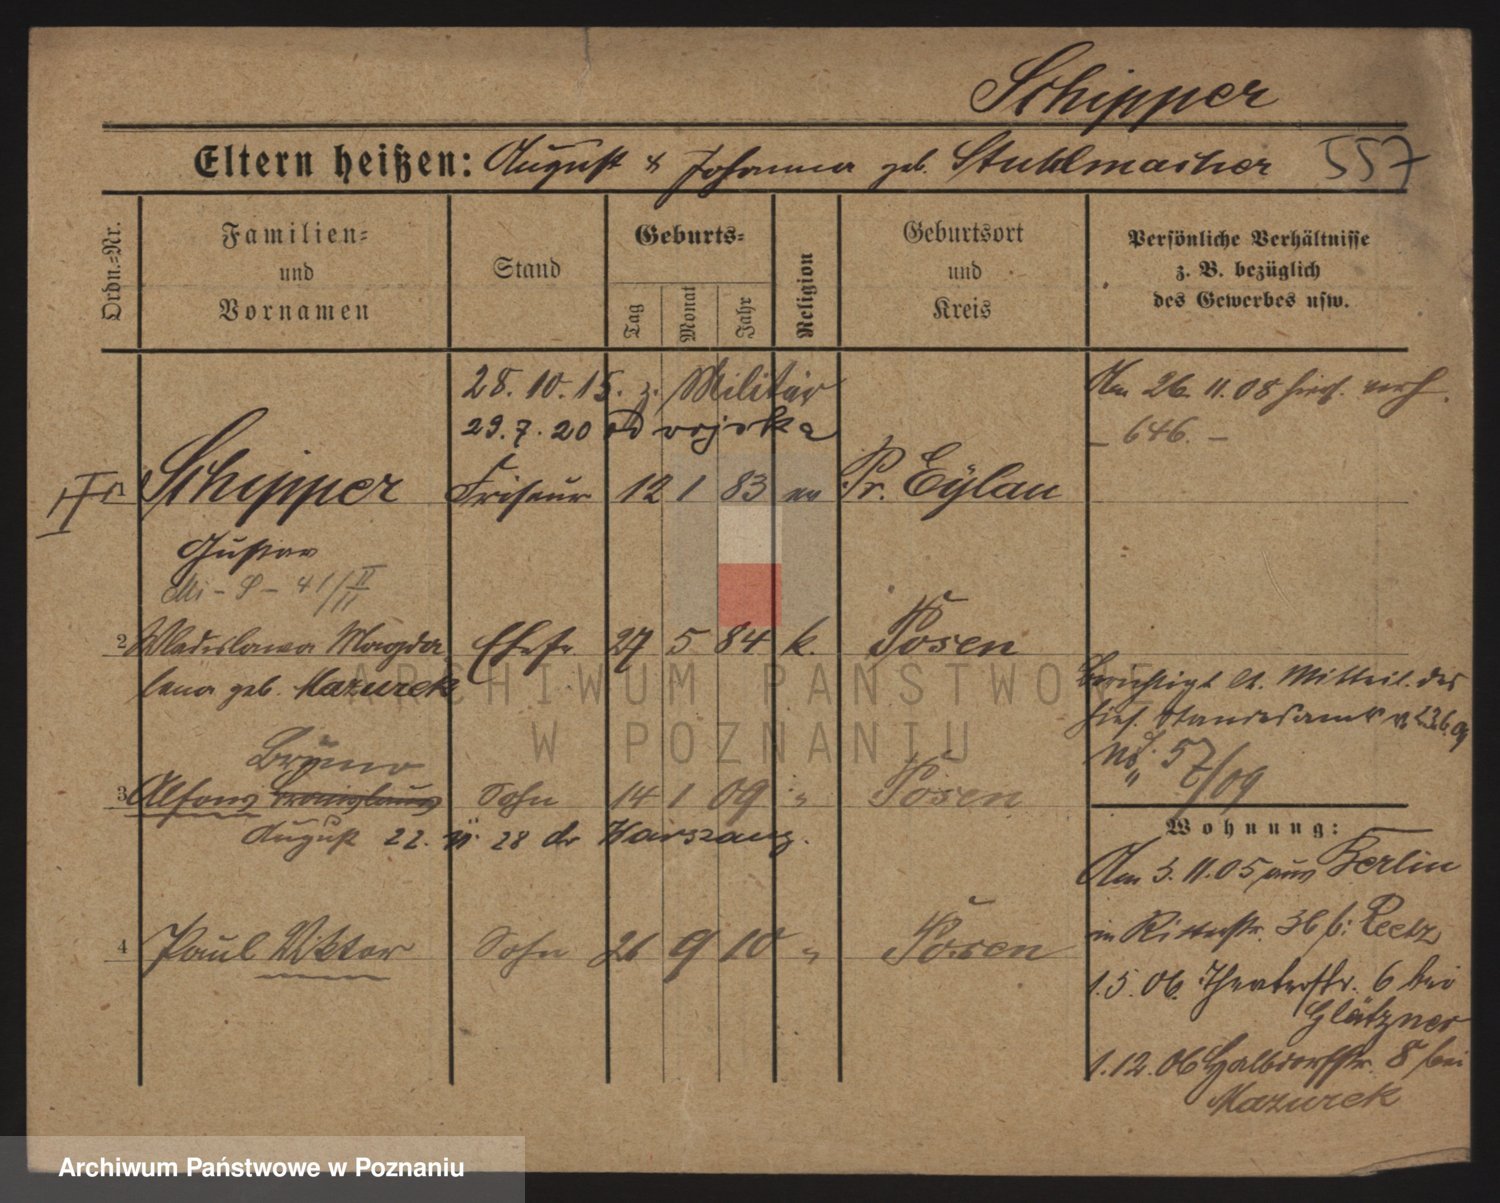 Schipper
Eltern heißen: August & Johanna geb. Stuhlmacher 557
Ordn.=Nr.
Familien=
und
Vornamen
Stand
Geburts=
Tag
Monat
Jahr
Religion
Geburtsort
und
Kreis
Persönliche Verhältnisse
z. B. bezüglich
des Gewerbes usw.
28.10.15. z. Militär
29.7.20 od wojska
Am 26.11.08 hies. verh.
– 646. –
Schipper Friseur 12 1 83 ev Pr. Eylau
Gustav
2 Wladislawa Magda Ehefr. 27 5 84 k. Posen
lena geb. Mazurek
Berichtigt lt. Mitteil. des
hies. Standesamts v. 23.6.09
No. 57/09
Bruno
3 Alfons Bronislaus Sohn 14 1 09 " Posen
August 22. 28 do Warszawy.
4 Paul Viktor Sohn 26 9 10 " Posen
Wohnung:
Am 3.11.05 aus Berlin
in Ritterstr. 36 b: Peetz
1.5.06. Theaterstr. 6 bei
Glätzner
1.12.06 Halbdorfstr. 8 bei
Mazurek
ARCHIWUM PAŃSTWOWE
W POZNANIU
Archiwum Państwowe w Poznaniu